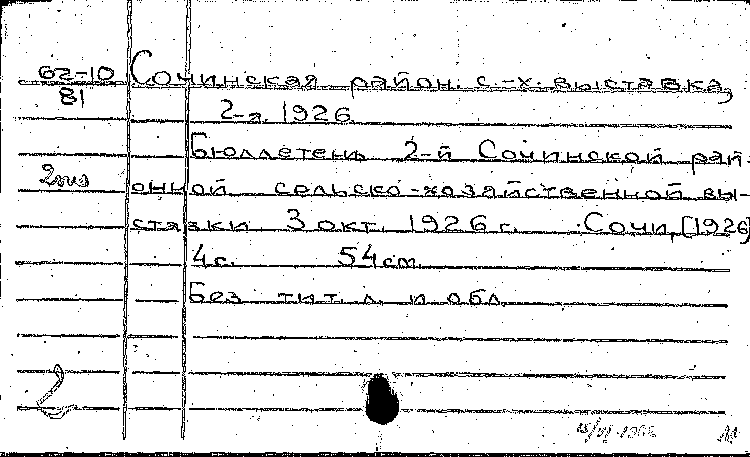 62-10 Сочинская район. с.-х. выставка,
81
2-я. 1926.
Бюллетень 2-й Сочинской рай-
2экз онной сельско-хозяйственной вы-
ставки 3 окт. 1926 г. Сочи, [1926]
4 с. 54 см.
Без тит. л. и обл.
2